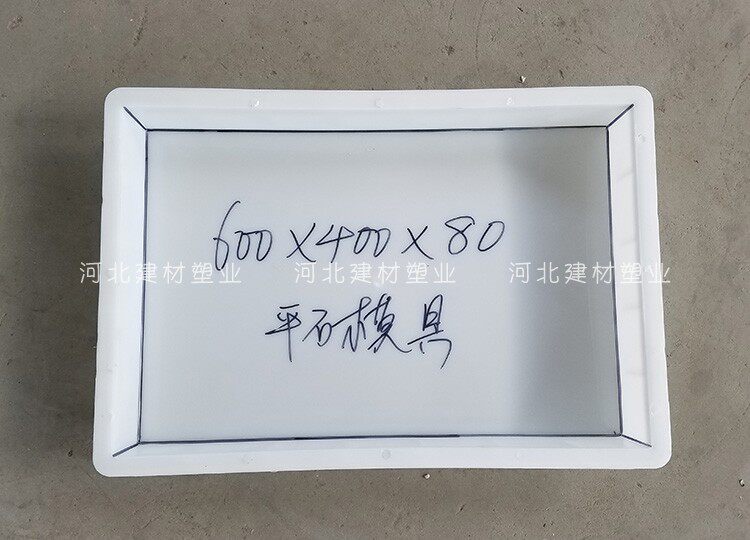 600×400×80
河北建材塑业 河北建材塑业 河北建材塑业
平石模具